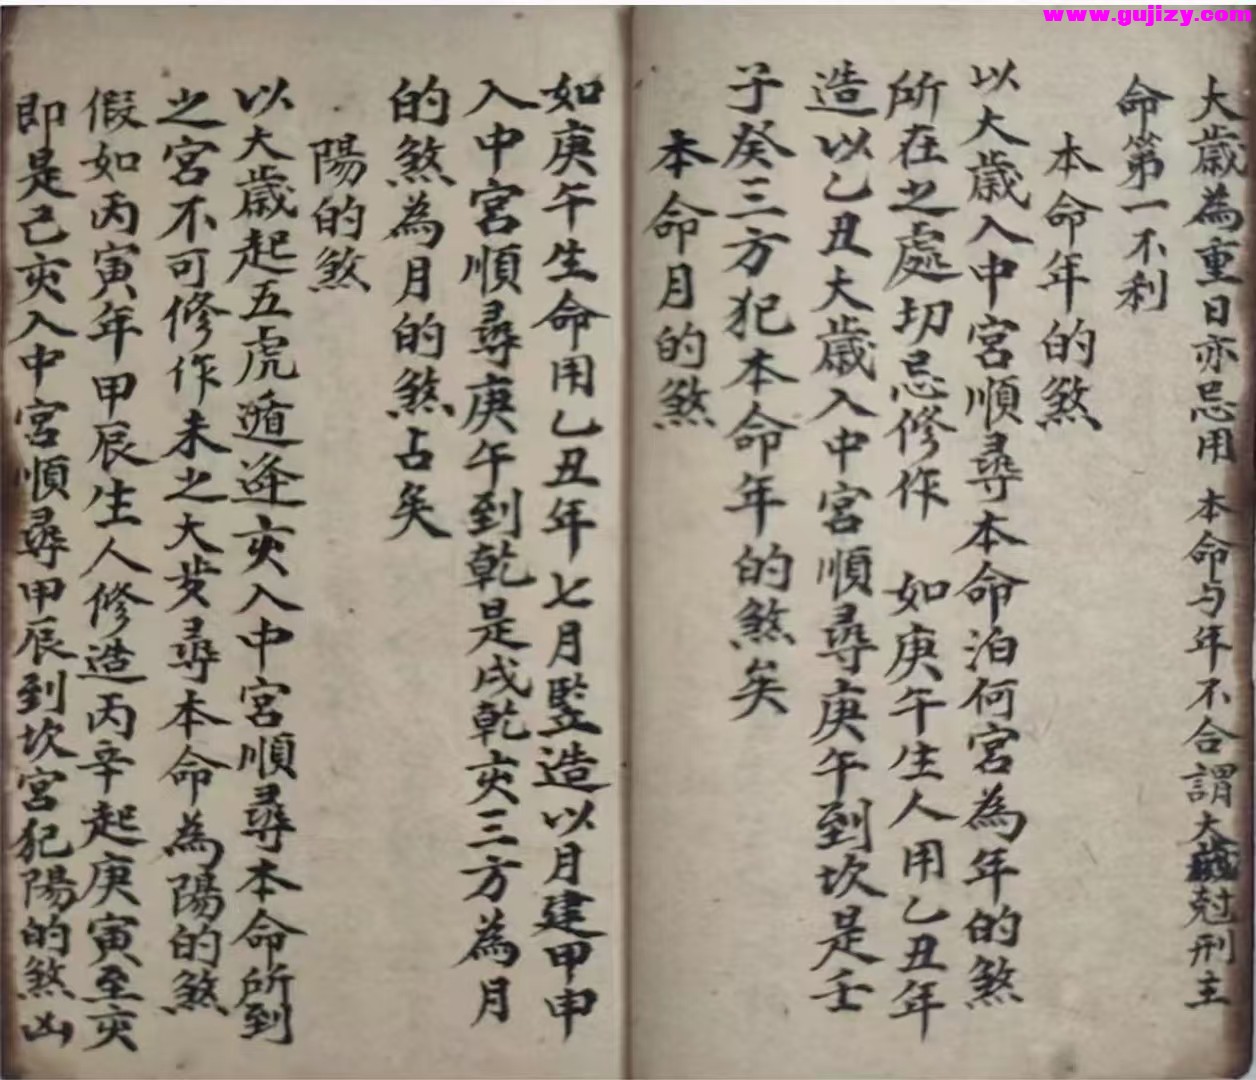 www.gujizy.com
大歲為重日亦忌用 本命与年不合謂大歲尅刑主
命第一不利
本命年的煞
以大歲入中宮順尋本命泊何宮為年的煞
所在之處切忌修作 如庚午生人用乙丑年
造以乙丑大歲入中宮順尋庚午到坎是壬
子癸三方犯本命年的煞矣
本命月的煞
如庚午生命用乙丑年七月監造以月建甲申
入中宮順尋庚午到乾是戌乾亥三方為月
的煞為月的煞占矣
陽的煞
以大歲起五虎遁逢亥入中宮順尋本命所到
之宮不可修作未之大歩尋本命為陽的煞
假如丙寅年甲辰生人修造丙辛起庚寅至亥
即是己亥入中宮順尋甲辰到坎宮犯陽的煞凶